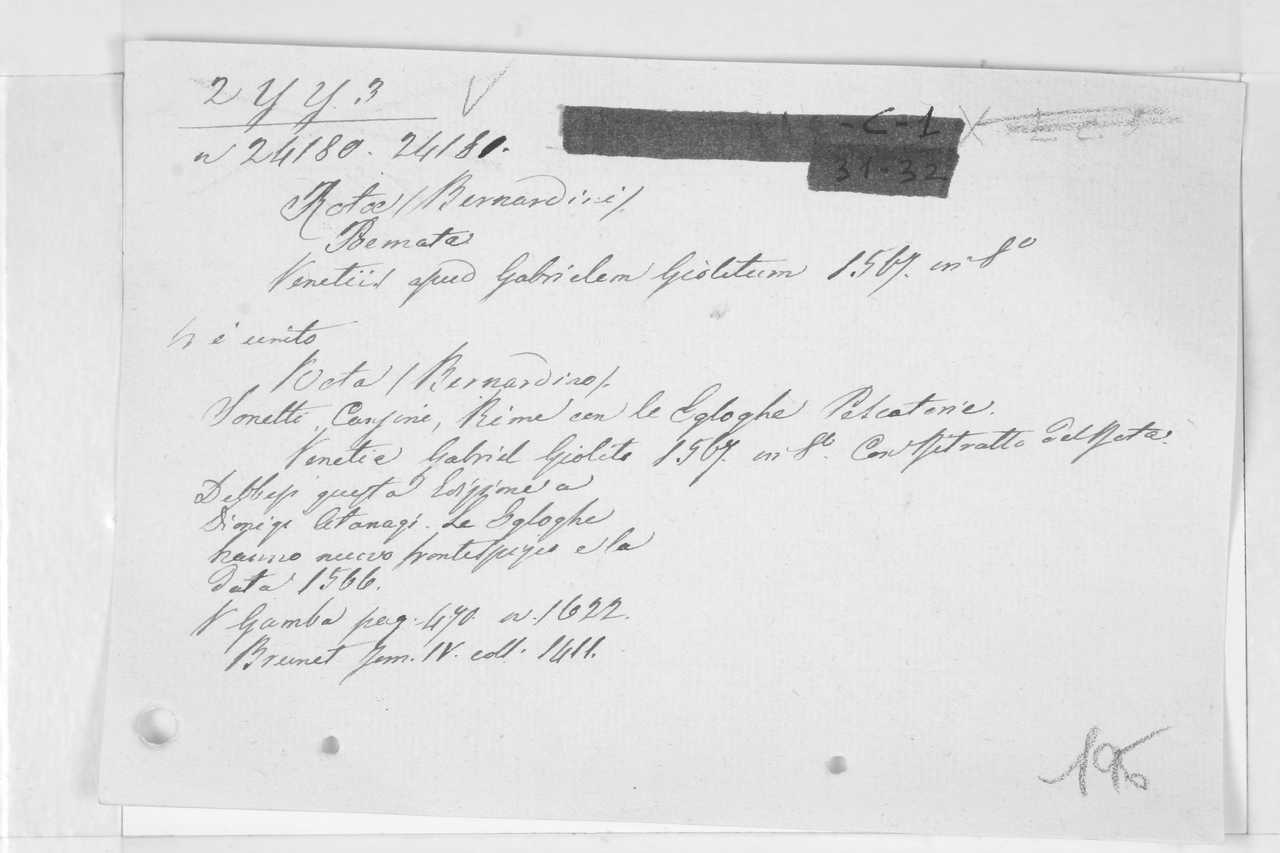 2 Y Y. 3
V
-C-1 X
31-32
n 24180. 24181.
Rotæ / Bernardini /.
Poemata
Venetiis apud Gabrielem Giolitum 1567. in 8º
Vi è unito
Rota / Bernardino /.
Sonetti, Canzoni, Rime con le Egloghe Pescatorie.
Venetia Gabriel Giolito 1567. in 8º. Con Ritratto del Rota.
Debbesi questa Edizione a
Dionigi Atanagi. Le Egloghe
hanno nuovo frontespizio e la
data 1566.
V Gamba pag. 470. n. 1622.
Brunet Tom. IV. coll. 1411.